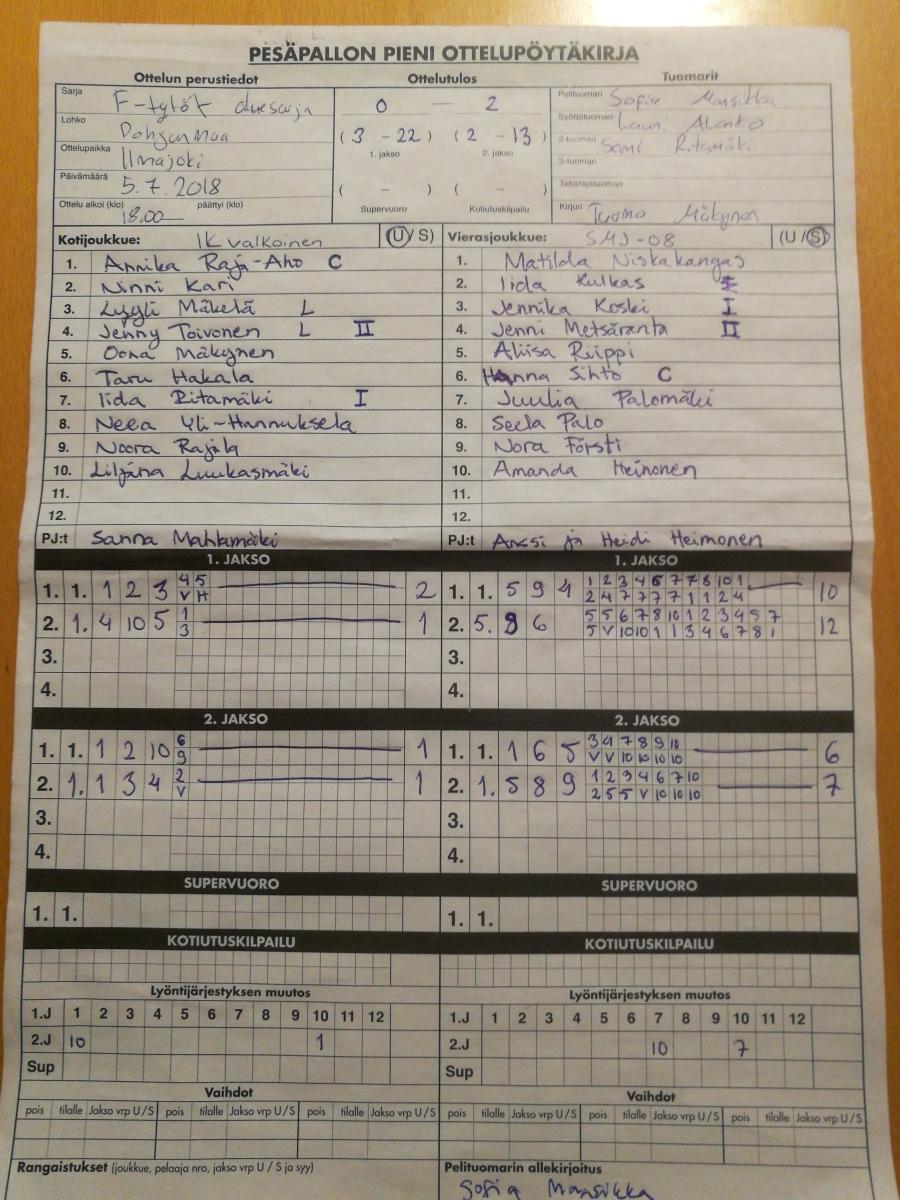 PESÄPALLON PIENI OTTELUPÖYTÄKIRJA
Ottelun perustiedot Ottelutulos Tuomarit
Sarja F-tytöt aluesarja
Lohko Pohjanmaa
Ottelupaikka Ilmajoki
Päivämäärä 5.7.2018
Ottelu alkoi (klo) 18.00 päättyi (klo)
0 — 2
(3 - 22) (2 - 13)
1. jakso 2. jakso
( - ) ( - )
Supervuoro Kotiutuskilpailu
Pelituomari Sofia Mansikka
Syöttötuomari Lauri Alanko
2-tuomari Sami Ritamäki
3-tuomari
Takarajatuomari
Kirjuri Tuomo Mäkynen
Kotijoukkue: IK valkoinen (U/S)
1. Annika Raja-Aho C
2. Ninni Kari
3. Lyyli Mäkelä L
4. Jenny Toivonen L II
5. Oona Mäkynen
6. Taru Hakala
7. Iida Ritamäki I
8. Neea Yli-Hannuksela
9. Noora Rajala
10. Liljana Luukasmäki
11.
12.
PJ:t Sanna Mahlamäki
Vierasjoukkue: SMJ-08 (U/S)
1. Matilda Niskakangas
2. Iida Kulkas
3. Jennika Koski I
4. Jenni Metsäranta II
5. Aliisa Riippi
6. Hanna Sihto C
7. Juulia Palomäki
8. Seela Palo
9. Nora Försti
10. Amanda Heinonen
11.
12.
PJ:t Anssi ja Heidi Heimonen
1. JAKSO
1. 1. 1 2 3 4 5 2
V H
2. 1. 4 10 5 1 1
3
3.
4.
1. JAKSO
1. 1. 5 9 4 1 2 3 4 6 7 7 8 10 1 10
2 4 7 7 7 7 1 1 2 4
2. 5. 9 6 5 5 6 7 8 10 1 2 3 4 5 7 12
5 V 10 10 1 1 3 4 6 7 8 1
3.
4.
2. JAKSO
1. 1. 1 2 10 6 1
9
2. 1. 1 3 4 2 1
V
3.
4.
2. JAKSO
1. 1. 1 6 5 3 4 7 8 9 10 6
V V 10 10 10 10
2. 1. 5 8 9 1 2 3 4 6 7 10 7
2 5 5 V 10 10 10
3.
4.
SUPERVUORO SUPERVUORO
1. 1. 1. 1.
KOTIUTUSKILPAILU KOTIUTUSKILPAILU
Lyöntijärjestyksen muutos Lyöntijärjestyksen muutos
1.J 1 2 3 4 5 6 7 8 9 10 11 12 1.J 1 2 3 4 5 6 7 8 9 10 11 12
2.J 10 1 2.J 10 7
Sup Sup
Vaihdot Vaihdot
pois tilalle Jakso vrp U/S pois tilalle Jakso vrp U/S pois tilalle Jakso vrp U/S pois tilalle Jakso vrp U/S pois tilalle Jakso vrp U/S pois tilalle Jakso vrp U/S
Rangaistukset (joukkue, pelaaja nro, jakso vrp U / S ja syy) Pelituomarin allekirjoitus
Sofia Mansikka